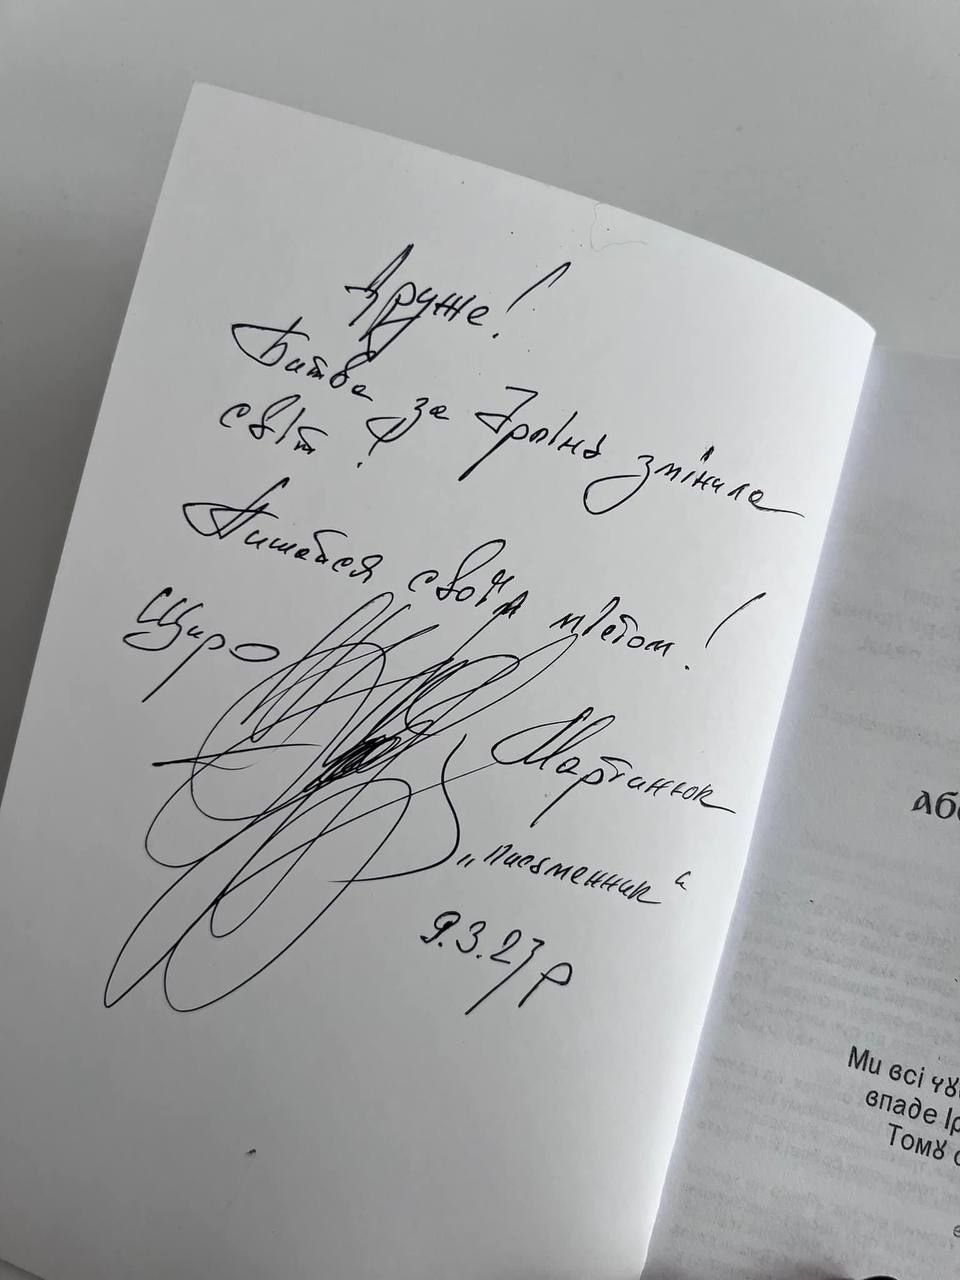 Друже!
Битва за Ірпінь змінила
світ!
Пишайся своїм містом!
Щиро
Мартинюк
„письменник“
9.3.23 р
або
Ми всі
впаде
Тому